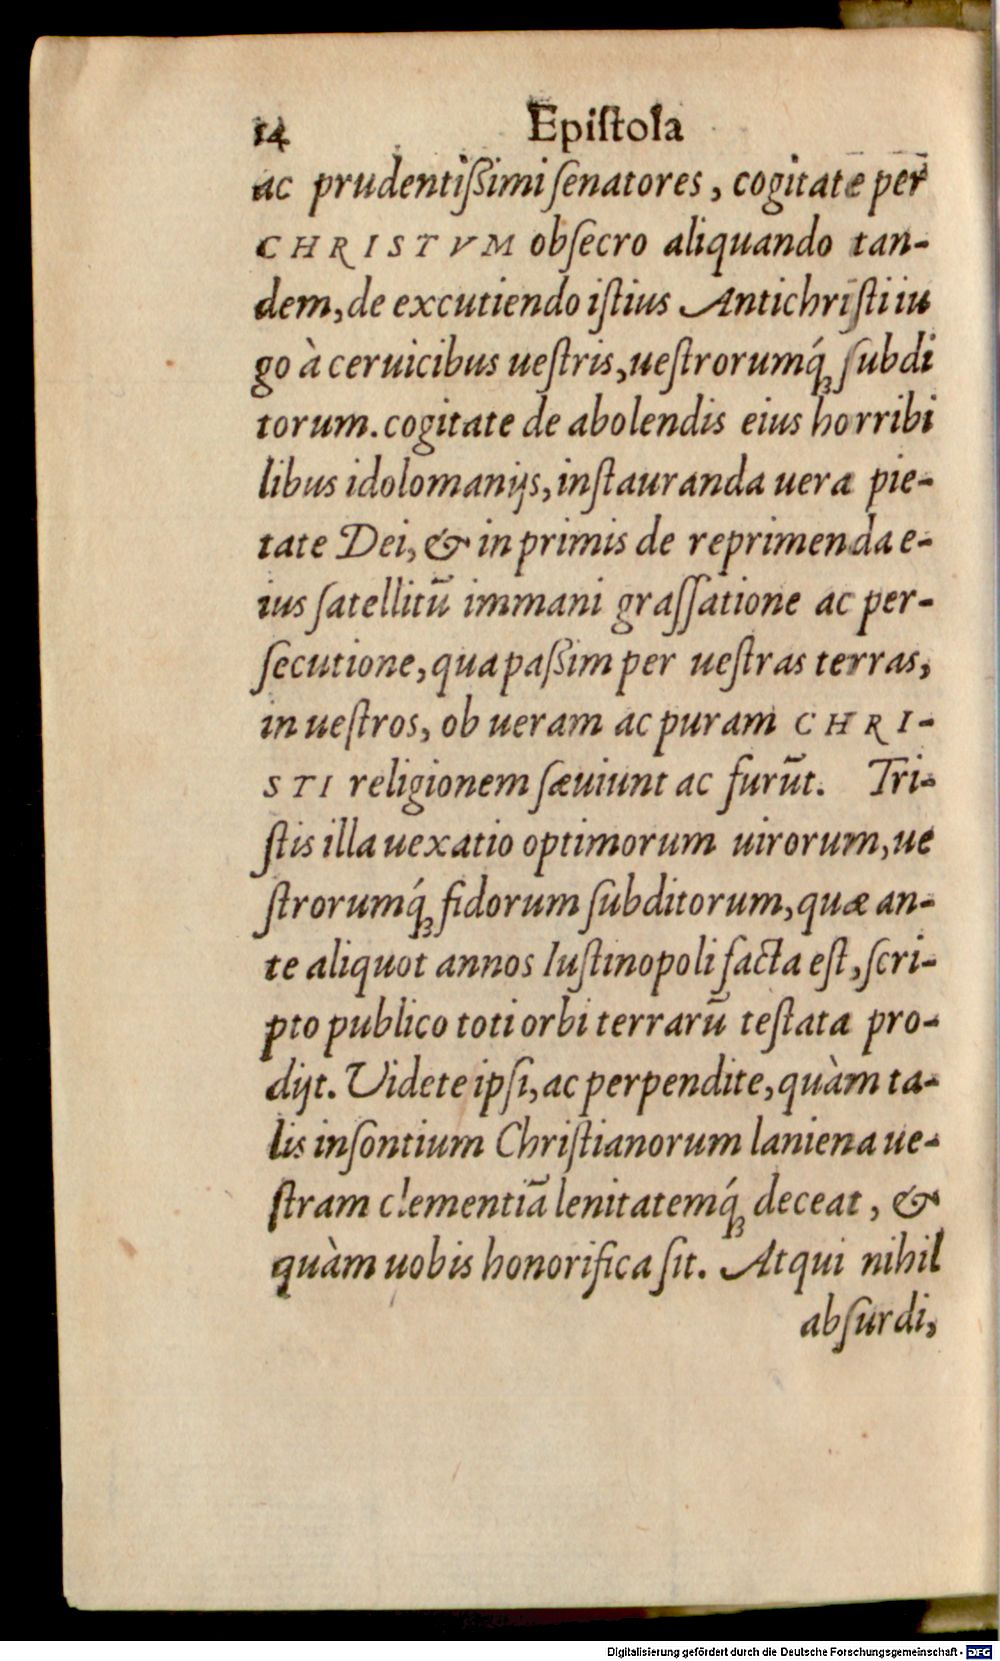 14 Epiſtola
ac prudentiſsimi ſenatores, cogitate per
CHRISTVM obſecro aliquando tan-
dem, de excutiendo iſtius Antichriſti iu
go à ceruicibus ueſtris, ueſtrorumq́ꝫ ſubdi
torum. cogitate de abolendis eius horribi
libus idolomanijs, inſtauranda uera pie-
tate Dei, & in primis de reprimenda e-
ius ſatellitū immani graſſatione ac per-
ſecutione, qua paſsim per ueſtras terras,
in ueſtros, ob ueram ac puram CHRI-
STI religionem ſæuiunt ac furūt. Tri-
ſtis illa uexatio optimorum uirorum, ue
ſtrorumq́ꝫ fidorum ſubditorum, quæ an-
te aliquot annos Iuſtinopoli facta eſt, ſcri-
pto publico toti orbi terrarū teſtata pro-
dijt. Videte ipſi, ac perpendite, quàm ta-
lis inſontium Chriſtianorum laniena ue-
ſtram clementiā lenitatemq́ꝫ deceat, &
quàm uobis honorifica ſit. Atqui nihil
abſurdi,
Digitalisierung gefördert durch die Deutsche Forschungsgemeinschaft - DFG